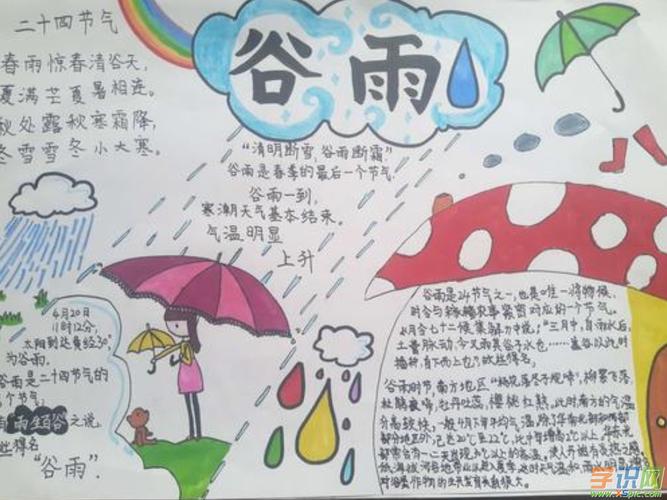 二十四节气
春雨惊春清谷天,
夏满芒夏暑相连。
秋处露秋寒霜降,
冬雪雪冬小大寒。
谷雨
“清明断雪,谷雨断霜”
谷雨是春季的最后一个节气
谷雨一到,
寒潮天气基本结束。
气温明显
上升
4月20日
11时12分,
太阳到达黄经30°
为谷雨。
谷雨是二十四节气的
个节气,
雨生百谷之说
得名
“谷雨”
谷雨是24节气之一,也是唯一将物候、
时令与农事紧密对应的一个节气。
《月令七十二候集解》中说:“三月中,自雨水后,
土膏脉动,今又雨其谷于水也……盖谷以此时
播种,自下而上也”,故此得名。
谷雨时节,南方地区“杨花落尽子规啼”,柳絮飞落,
杜鹃夜啼,牡丹吐蕊,樱桃红熟。此时南方的气温
升高较快,一般4月下旬平均气温,除了华南北部和西部
部分地区外,已达20℃至22℃,比中旬增高2℃以上。华南东
部常会有一二天出现30℃以上的高温,使人开始有炎热之感。
低海拔河谷地带也进入夏季。
学识网